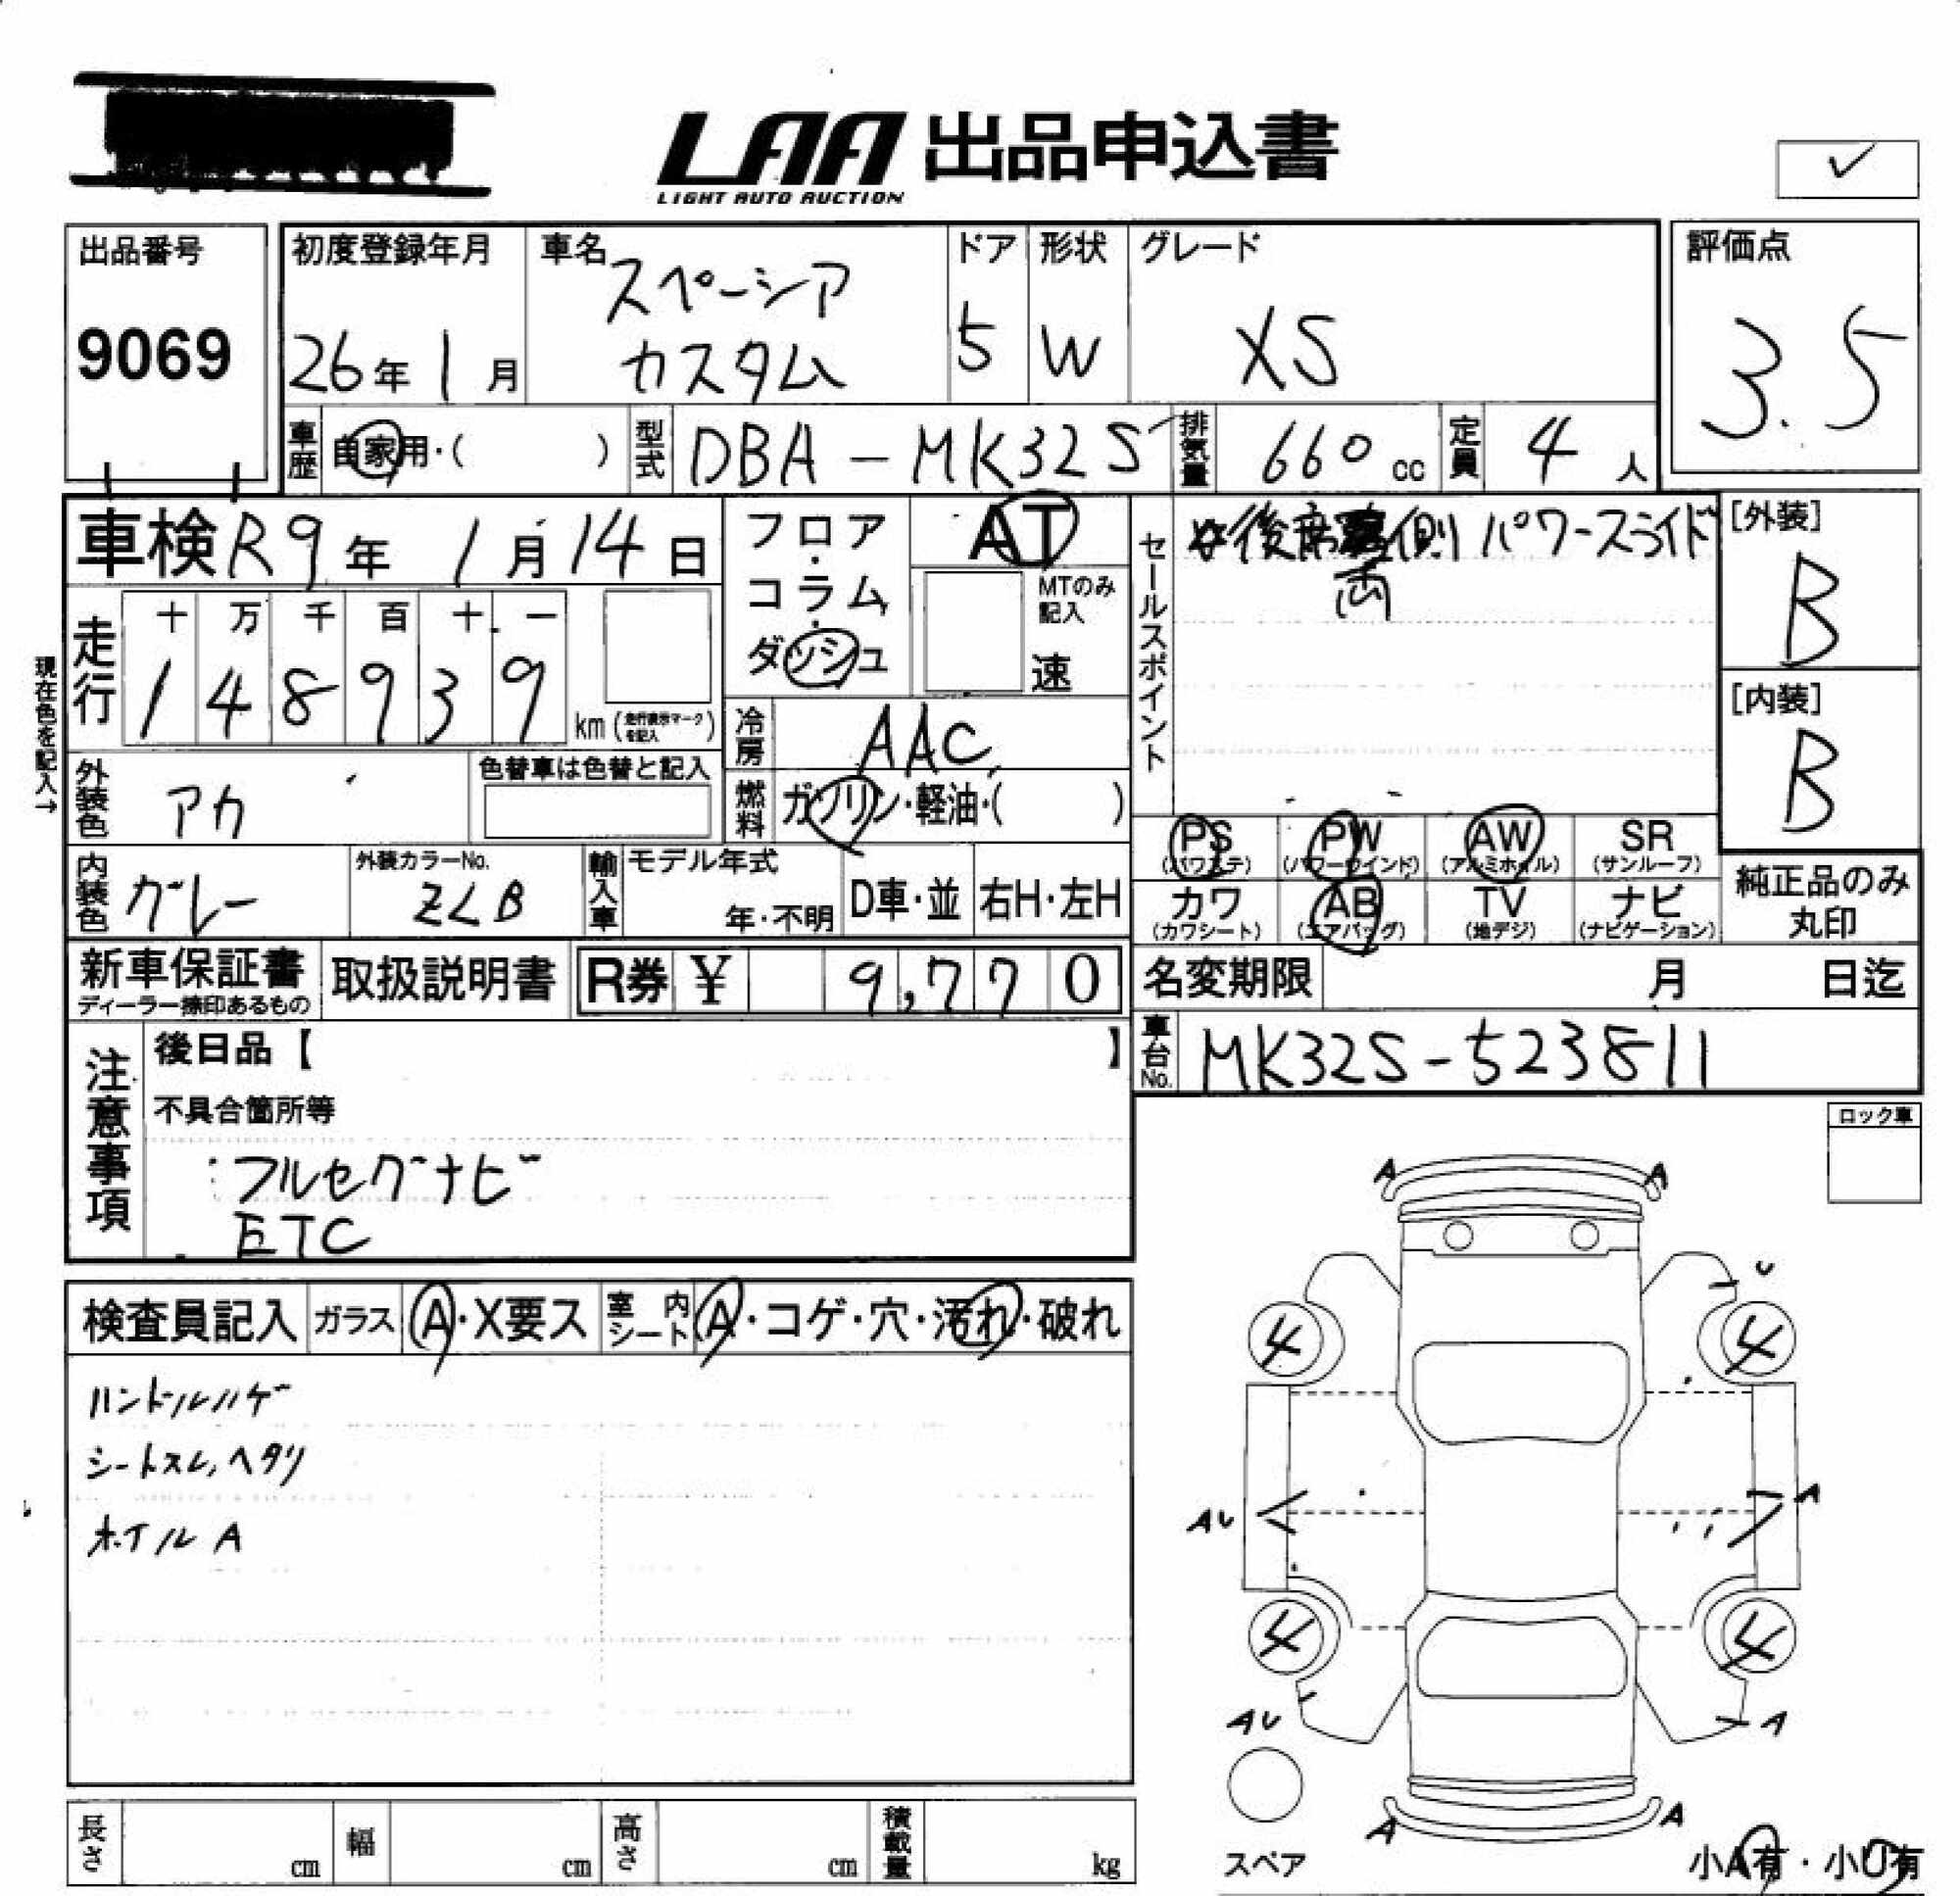 LAA 出品申込書
LIGHT AUTO AUCTION
✓
出品番号
9069
初度登録年月
26年1月
車名
スペーシア
カスタム
ドア
5
形状
W
グレード
XS
評価点
3.5
車歴
自家用・( )
型式
DBA-MK32S
排気量
660cc
定員
4人
車検 R9年1月14日
フロア・コラム・ダッシュ
AT
MTのみ記入
速
セールスポイント
後席 側パワースライド
両
[外装]
B
[内装]
B
現在色を記入→
走行
十 万 千 百 十 一
1 4 8 9 3 9
km(走行表示マークを記入)
冷房
AAC
外装色
アカ
色替車は色替と記入
燃料
ガソリン・軽油・( )
PS (パワステ)
PW (パワーウインド)
AW (アルミホイル)
SR (サンルーフ)
カワ (カワシート)
AB (エアバッグ)
TV (地デジ)
ナビ (ナビゲーション)
純正品のみ
丸印
内装色
グレー
外装カラーNo.
ZLB
輸入車
モデル年式
年・不明
D車・並
右H・左H
新車保証書
ディーラー捺印あるもの
取扱説明書
R券 ¥ 9,770
名変期限 月 日迄
車台No.
MK32S-523811
注意事項
後日品【 】
不具合箇所等
フルセグナビ
ETC
ロック車
検査員記入
ガラス
A・X要ス
室内シート
A・コゲ・穴・汚れ・破れ
ハンドルハゲ
シートスレ,ヘタリ
ホイルA
A A
U
4 4
AU A
4 4
AU A
A A
スペア
小A有・小U有
長さ cm
幅 cm
高さ cm
積載量 kg